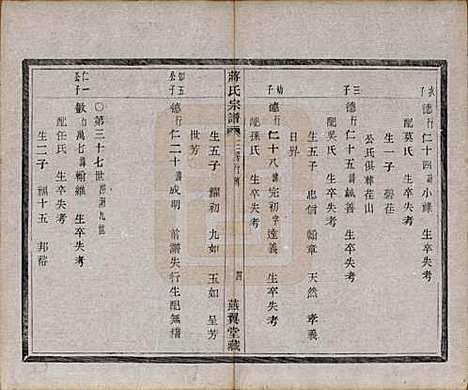 次子 德行仁十四諱小祿 生卒失考
配莫氏 生卒失考
生一子 磐茌
公氏俱葬茌山
三子 德行仁十五諱誠善 生卒失考
配吴氏 生卒失考
生五子 忠信 翰章 天然 孝義
日昇
幼子 德行仁十八諱完初字達義 生卒失考
配孫氏 生卒失考
蔣氏宗譜 四 燕翼堂藏
生五子 耀初 九如 玉如 呈芳
世芳
五公子 德行仁二十諱成期 前譜失行生配無稽
〇第三十七世
仁一公子 行萬七諱翰維 生卒失考
配任氏 生卒失考
生二子 福十五 邦裕